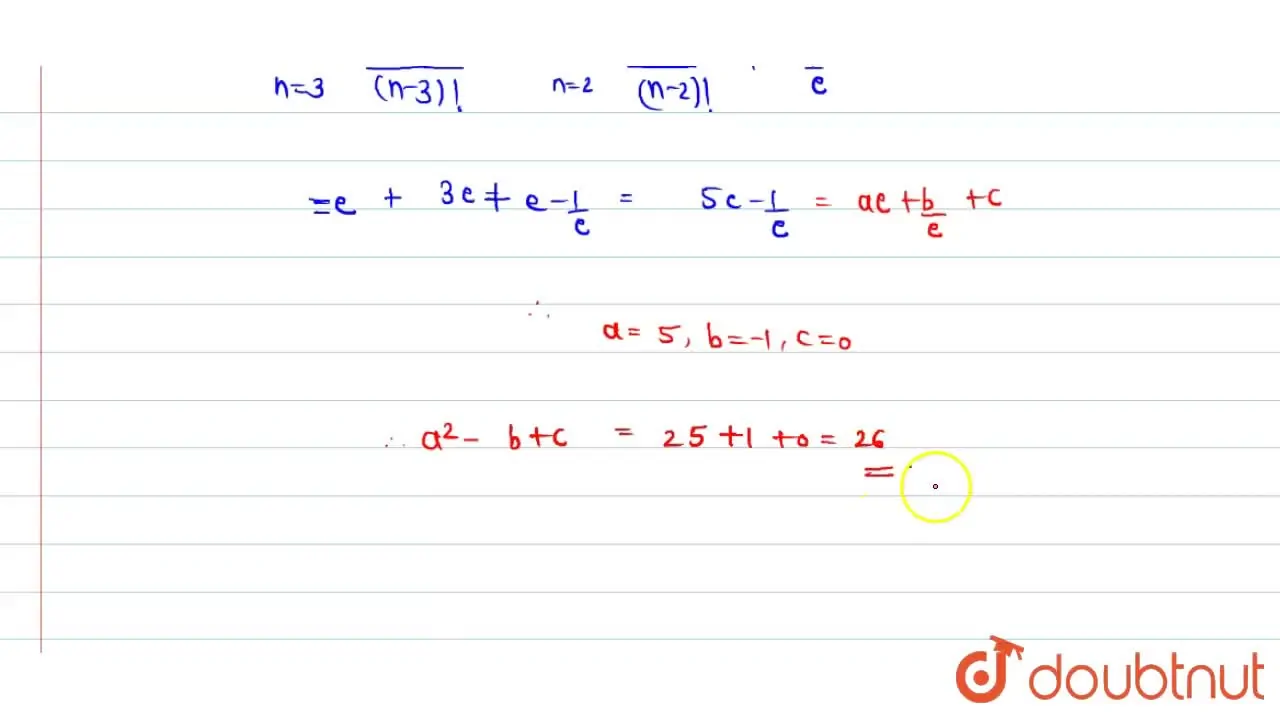 n=3 (n-3)! n=2 (n-2)! e
=e + 3e + e - 1/e = 5e - 1/e = ae + b/e + c
∴ a = 5, b = -1, c = 0
∴ a² - b + c = 25 + 1 + 0 = 26
doubtnut